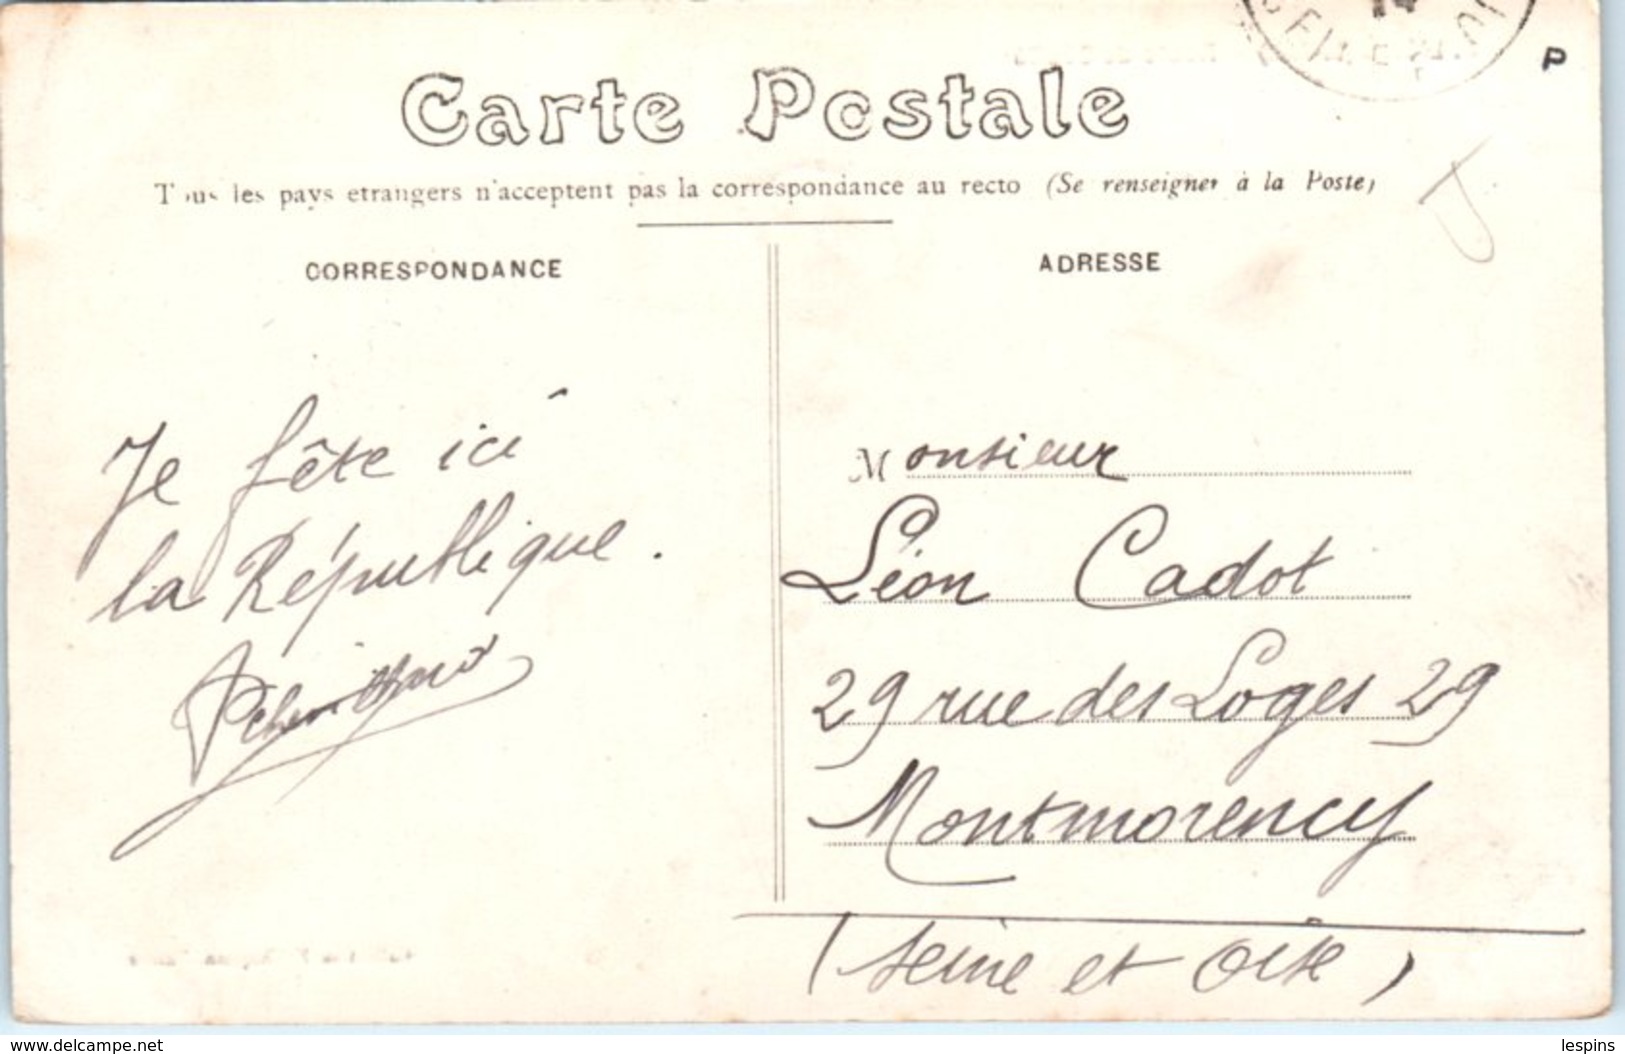 Carte Postale
Tous les pays etrangers n'acceptent pas la correspondance au recto (Se renseigner à la Poste)
CORRESPONDANCE
ADRESSE
P
Je fête ici
la République.
Monsieur
Léon Cadot
29 rue des Loges 29
Montmorency
(Seine et Oise)
www.delcampe.net
lespins